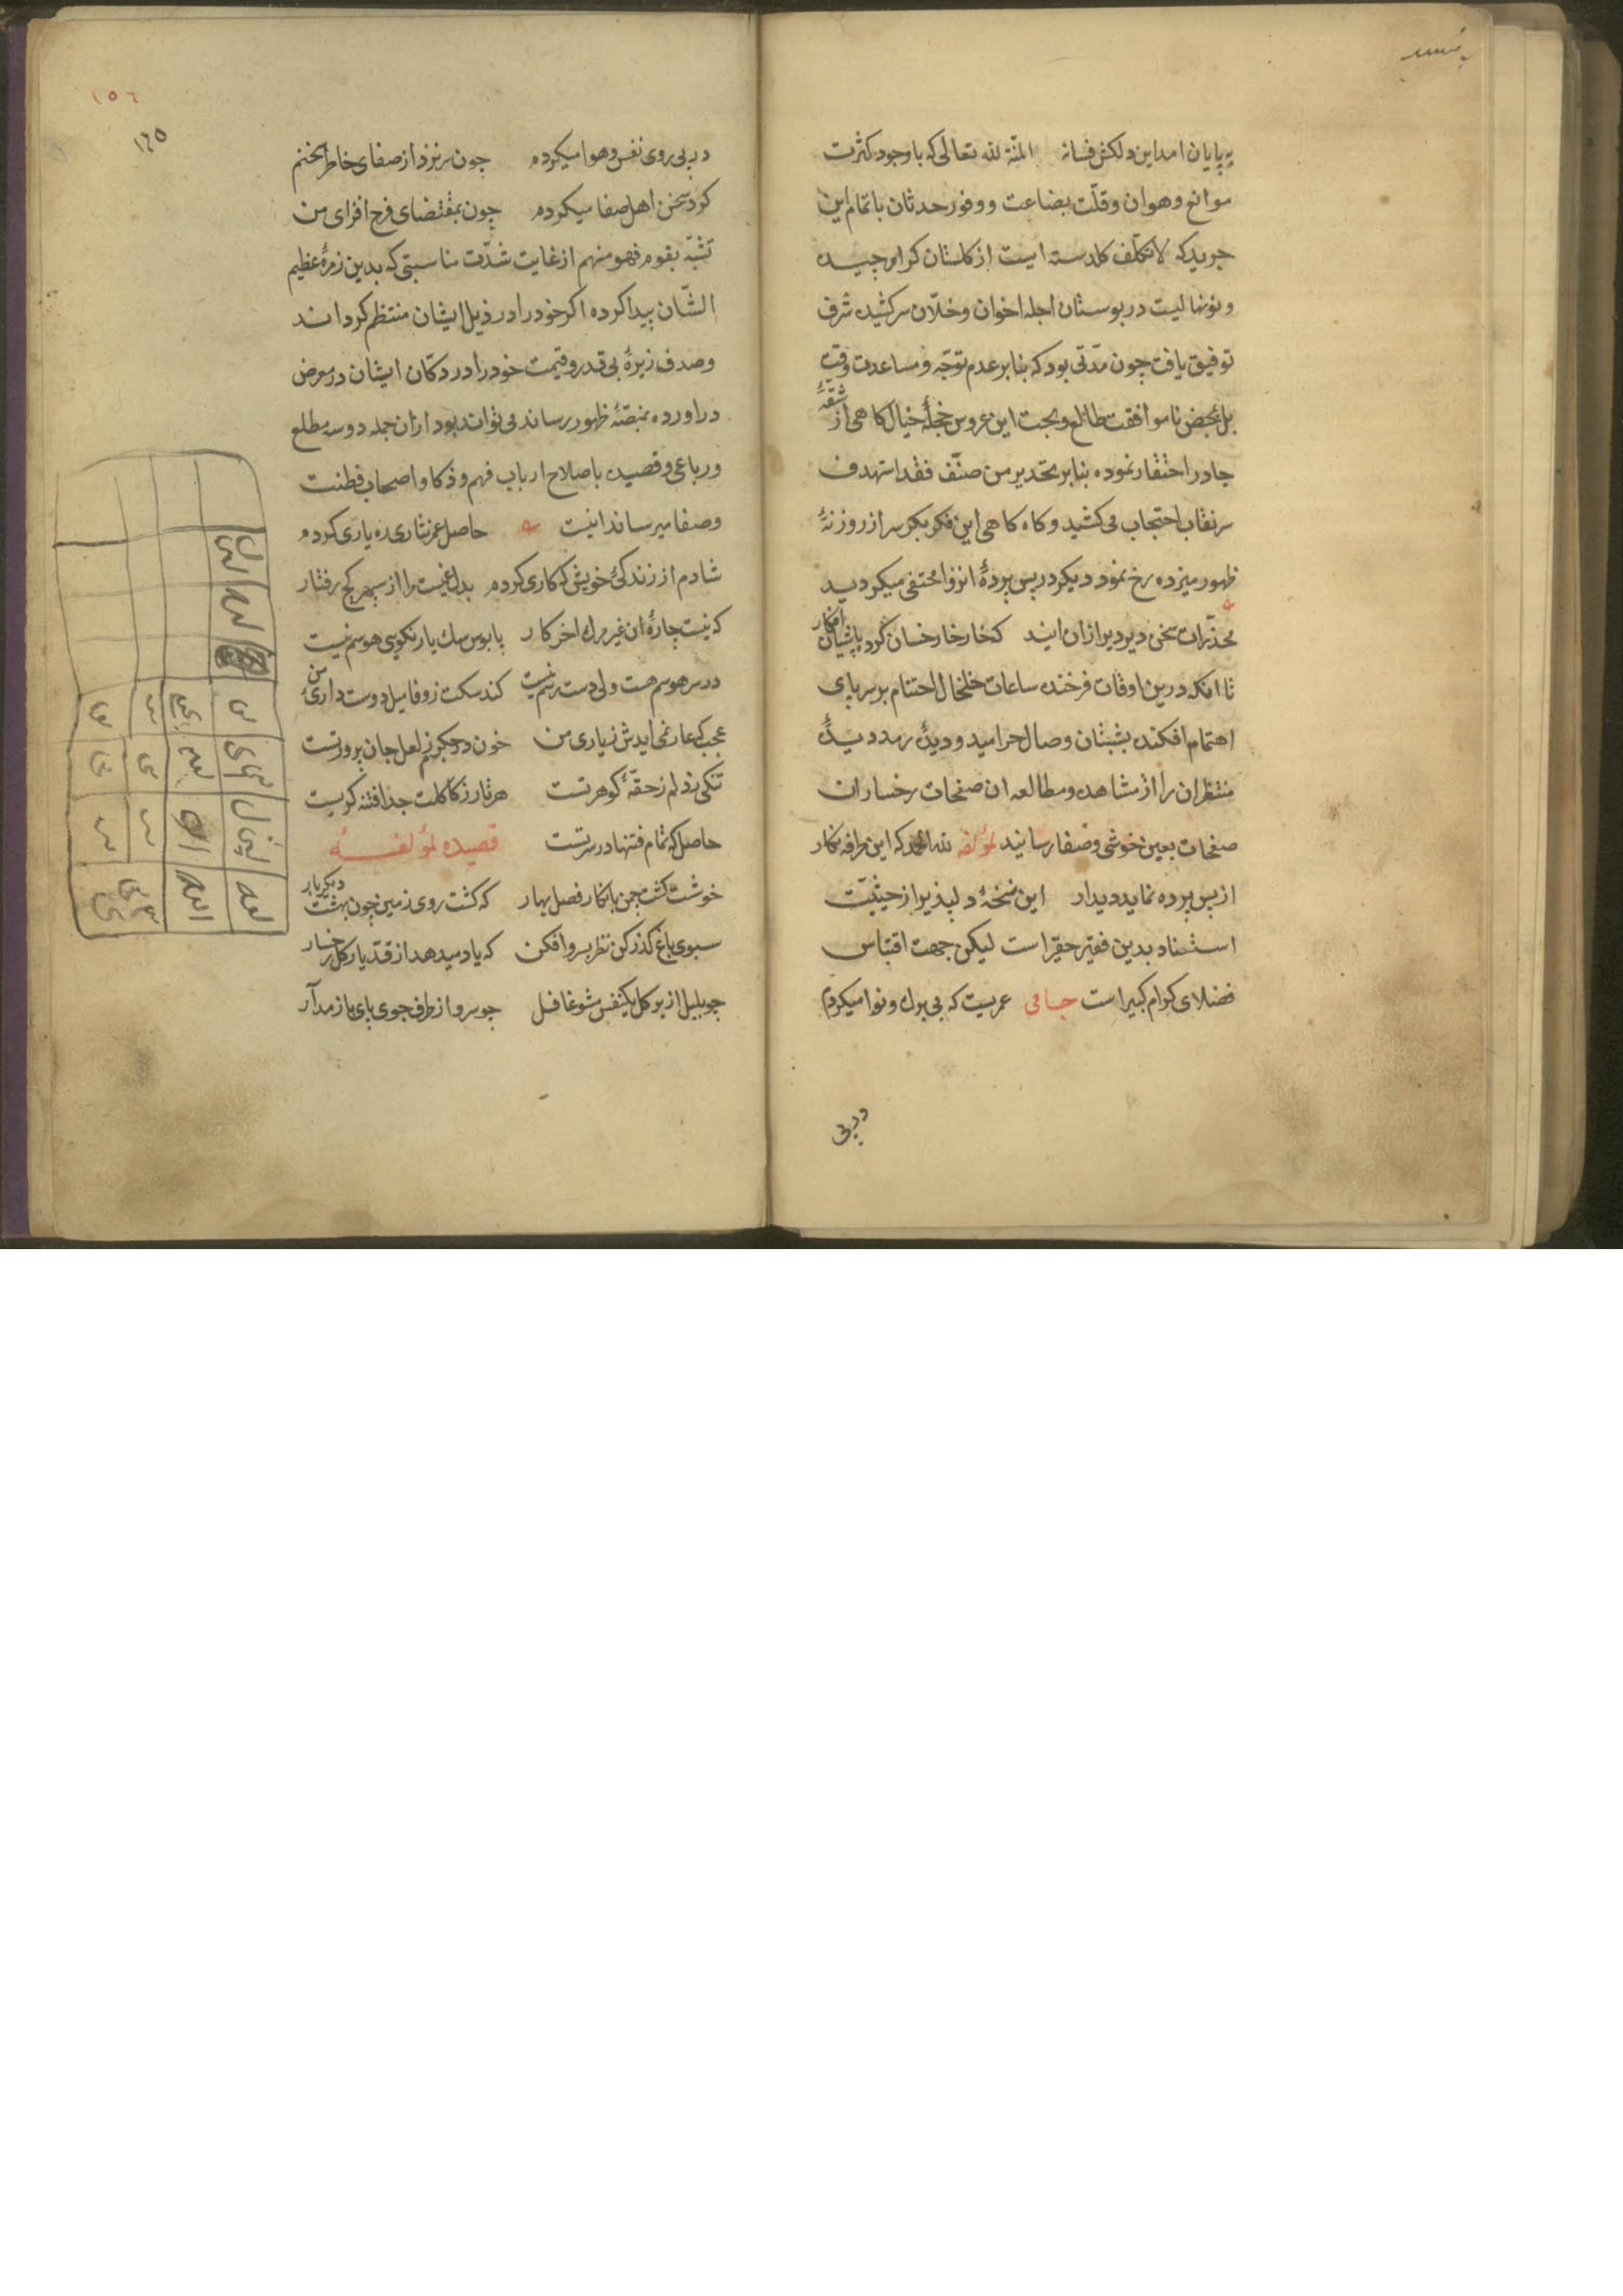 به پایان امد این دلکش فسانه المنة لله تعالی که با وجود کثرت
موانع و هوان و قلّت بضاعت و وفور حدثان باتمام این
جریده که لا تکلّف کلدسته ایست از کلستان کرام چیده
و نونهالیست در بوستان اجله اخوان و خلّان سر کشیده شرف
توفیق یافت چون مدّتی بود که بنا بر عدم توجّه و مساعدت وقت
بل بمحض ناموافقت طالع و بخت این عروس حجلهٔ خیال کاهی از شقّهٔ
چادر احتقار نموده بنا بر تحذیر من صنّف فقد استهدف
سر نقاب احتجاب می کشید و کاه کاهی این فکر بکر سر از روزنهٔ
ظهور میزده رخ نمود دیکر در پس پردهٔ انزوا مختفی میکردید
مخدّرات سخن دیر دیر ازان ایند که خار خار خسان کرد پاشان افکار
تا انکه درین اوقات فرخنده ساعات خلخال اختتام بر سر پای
اهتمام افکنده بشبستان وصال خرامید و دیدهٔ رمد دیدهٔ
منتظران را از مشاهده و مطالعه ان صفحات رخساران
صفحات بعین خوشی و صفا رسانید لمؤلفه لله الحمد که این طرفه نکار
از پس پرده نماید دیدار این نسخهٔ دلپذیر از حیثیّت
استناد بدین فقیر حقیر است لیکن جهت اقتباس
فضلای کرام کبیر است جامی عمریست که بی برك و نوا میکردم
در پی
١٥٦
١٦٥
در پی روی نفس و هوا میکردم چون سر نزد از صفای خاطر سخنم
کرد سخن اهل صفا میکردم چون بمقتضای فرح افزای من
تشبّه بقوم فهو منهم از غایت شدّت مناسبتی که بدین زمرهٔ عظیم
الشّان پیدا کرده اکر خود را در ذیل ایشان منتظم کرداند
و صدف زیرهٔ بی قدر و قیمت خود را در دکّان ایشان در معرض
در اورده بمنصّهٔ ظهور رساند می تواند بود ازان جمله دو سه مطلع
و رباعی و قصیده باصلاح ارباب فهم و ذکا و اصحاب فطنت
و صفا میرساند اینست حاصل عمر نثاری ره یاری کردم
شادم از زندکی خویش که کاری کردم بدل غمیست مرا از سپهر کج رفتار
که نیست چارهٔ ان غیر مرك اخر کار پا بوس سك یار نکویی هوسم نیست
در سر هوسم هست ولی دست رسم نیست کند سکت ز وفا میل دوست داریٔ من
عجب که عار نمی ایدش ز یاری من خون در جکرم ز لعل جان پرور تست
تنکی دلم ز حقّهٔ کوهر تست هر تار ز کاکلت جدا فتنه کریست
حاصل که تمام فتنها در سر تست قصیده لمؤلفه
خوشست کشت چمن با نکار فصل بهار که کشت روی زمین چون بهشت دیکر بار
بسوی باغ کذر کن نظر بسرو افکن که یاد میدهد از قدّ یار کل رخسار
چو بلبل از بر کل یکنفس مشو غافل چو سرو از طرف جوی پای باز مدار